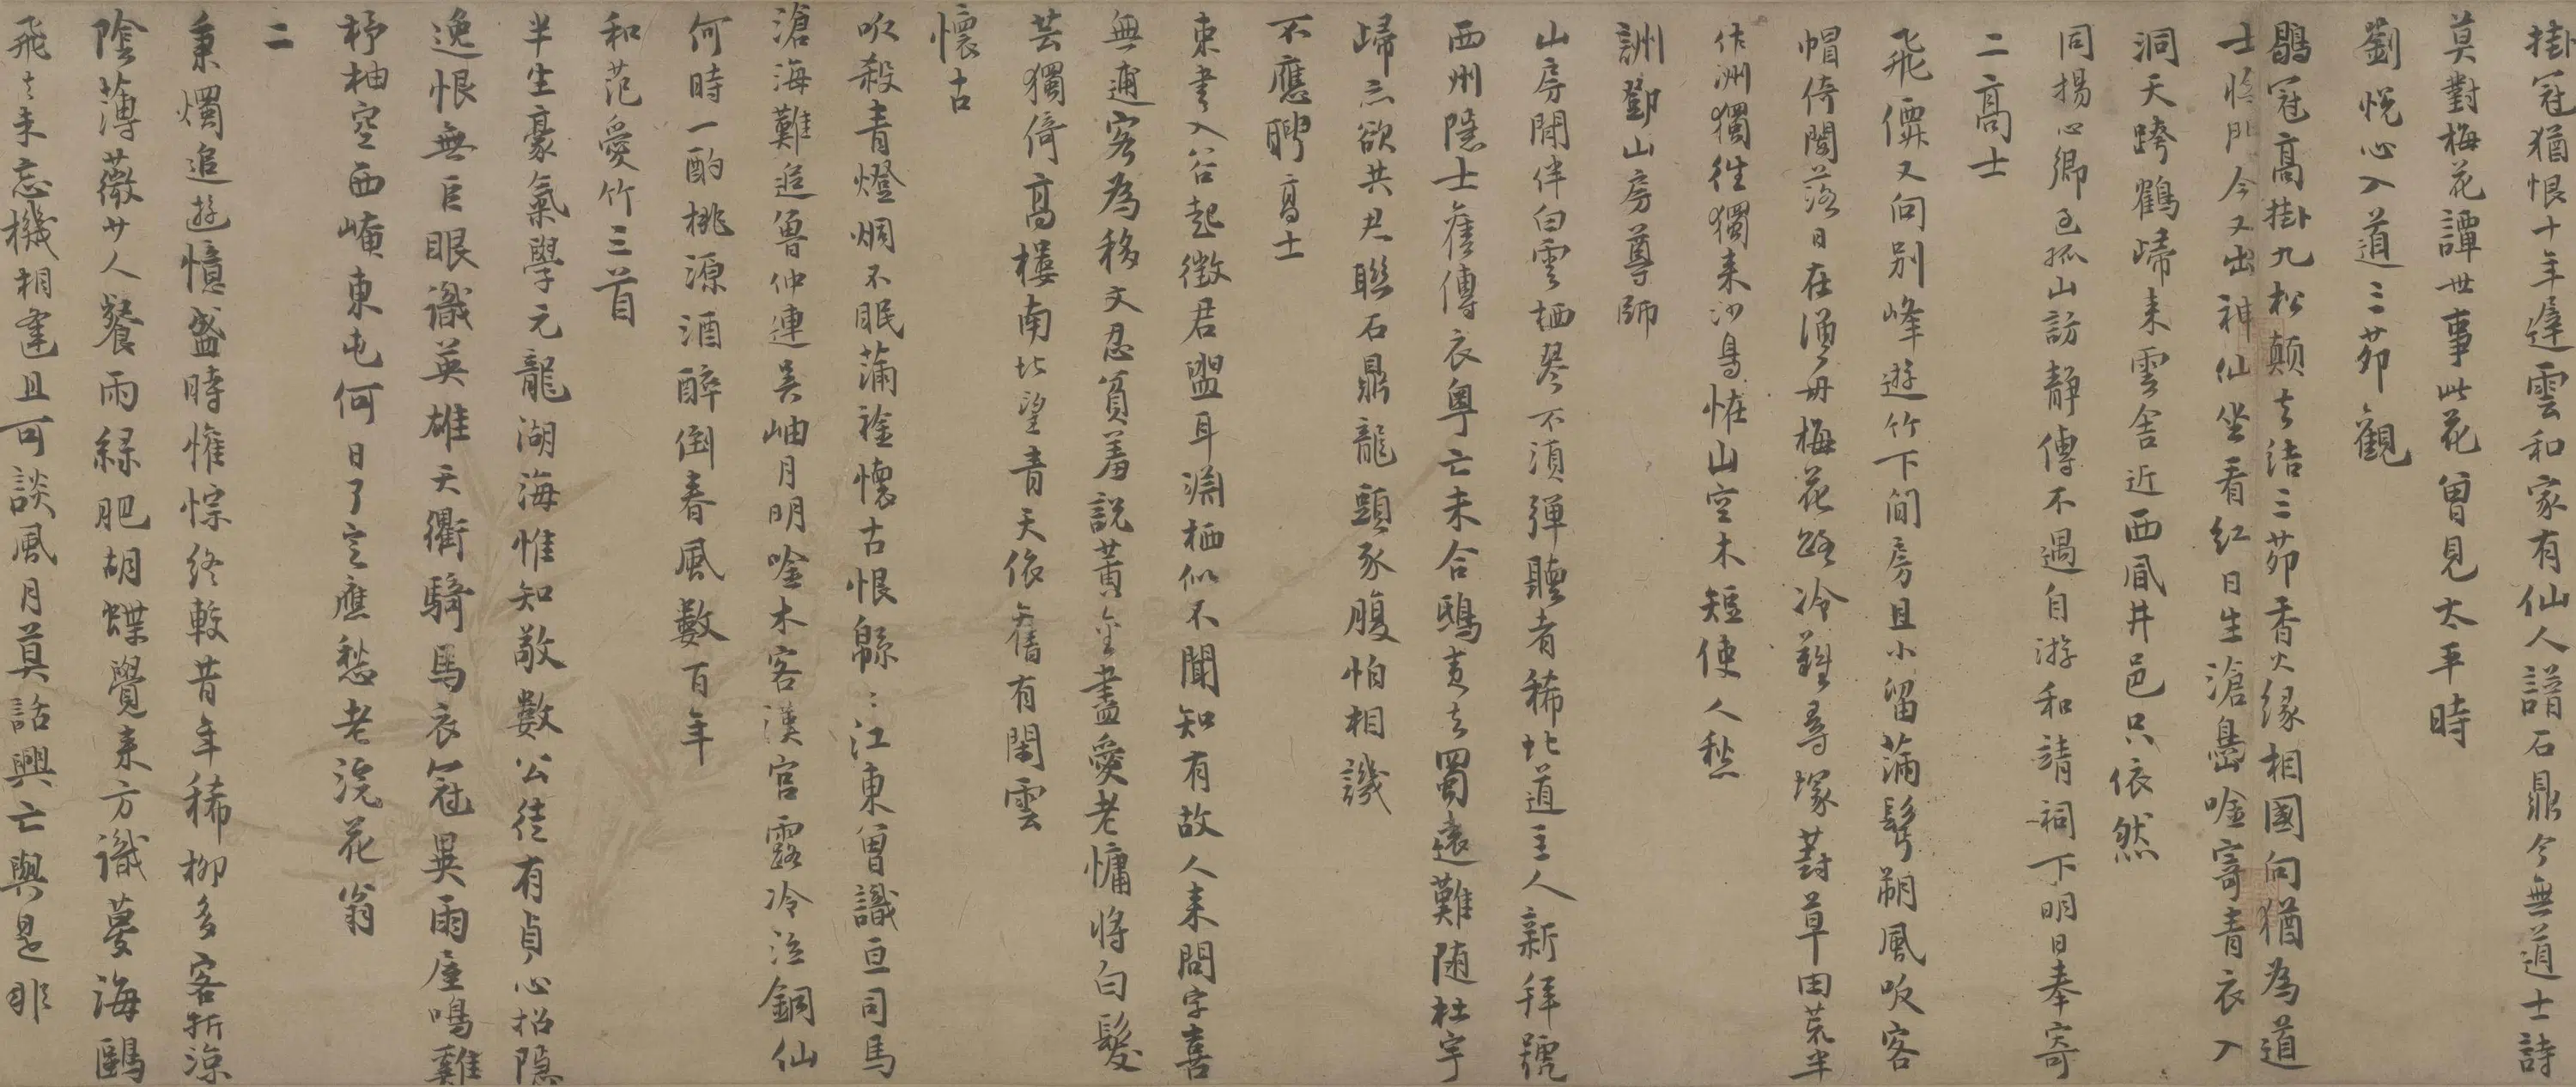 掛冠猶恨十年遲雲和家有仙人譜石鼎今無道士詩
莫對梅花譚世事此花曾見太平時
劉悅心入道三茆觀
鶡冠高掛九松顛去結三茆香火緣相國向猶為道
士將門今又出神仙坐看紅日生滄島吟寄青衣入
洞天跨鶴歸來雲舍近西風井邑只依然
同楊心卿至孤山訪靜傳不遇自游和靖祠下明日奉寄
二高士
飛僊又向別峰遊竹下閒房且小留蒲髩朔風吹客
帽倚闌落日在漁舟梅花路冷難尋塚葑草田荒半
作洲獨往獨來沙鳥怪山空木短使人愁
詶鄧山房尊師
山房閒伴白雲栖琴不須彈聽者稀北道主人新拜號
西州隱士舊傳衣粵亡未合鴟夷去蜀遠難隨杜宇
歸亦欲共君聯石鼎龍頭豕腹怕相譏
不應聘高士
束書入谷起徵君盥耳淵栖似不聞知有故人來問字喜
無逋客為移文忍貧羞說黃金盡愛老慵將白髮
芸獨倚高樓南北望青天依舊有閑雲
懷古
吹殺青燈烟不眠蒲襟懷古恨緜〻江東曾識亘司馬
滄海難逢魯仲連吳岫月明吟木客漢宮露冷泣銅仙
何時一酌桃源酒醉倒春風數百年
和范愛竹三首
半生豪氣學元龍湖海惟知敬數公徒有貞心招隱
逸恨無巨眼識英雄天衢騎馬衣冠異雨屋鳴雞
杼柚空西崦東屯何日了定應愁老浣花翁
二
秉燭追遊憶盛時懽悰終較昔年稀柳多客折涼
陰薄薇廿人餐雨綠肥胡蝶覺來方識夢海鷗
飛去未忘機相逢且可談風月莫話興亡與是非